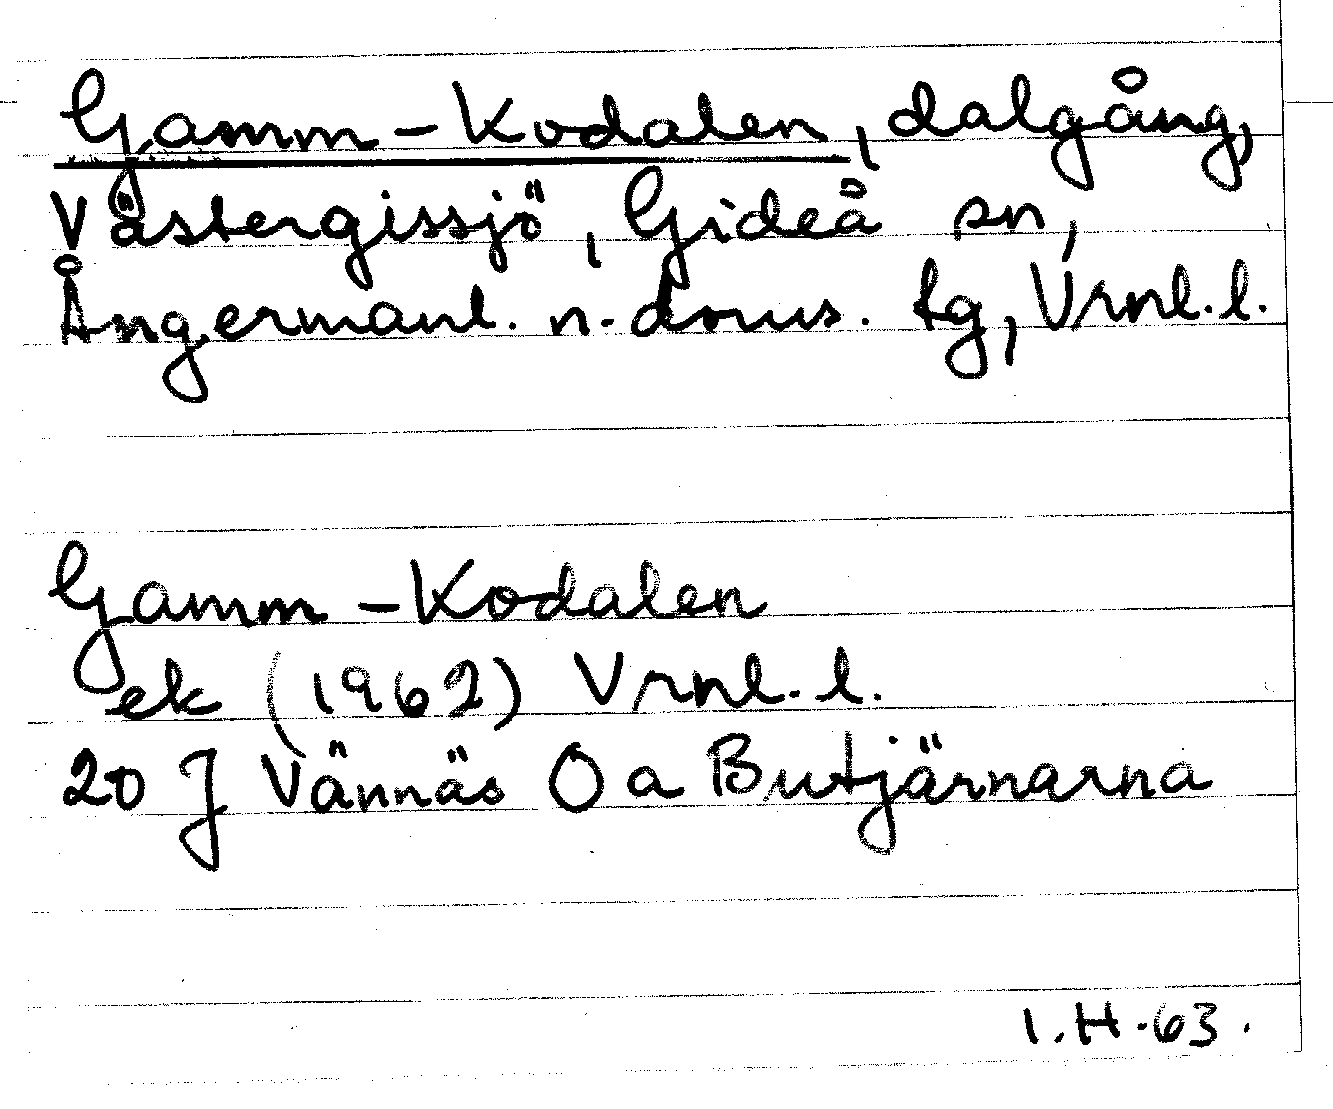 Gamm-Kodalen, dalgång,
Västergissjö, Gideå sn,
Ångermanl. n. doms. tg, Vrnl. l.
Gamm-Kodalen
ek (1962) Vrnl. l.
20 J Vännäs O a Butjärnarna
I.H.63.